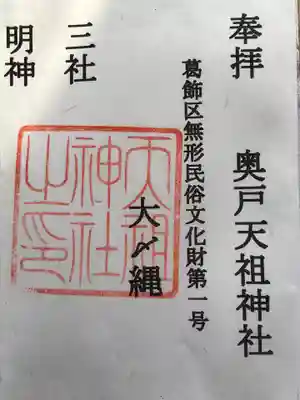 奉拝 奥戸天祖神社
葛飾区無形民俗文化財第一号
大〆縄
天祖
神社
之印
三社
明神